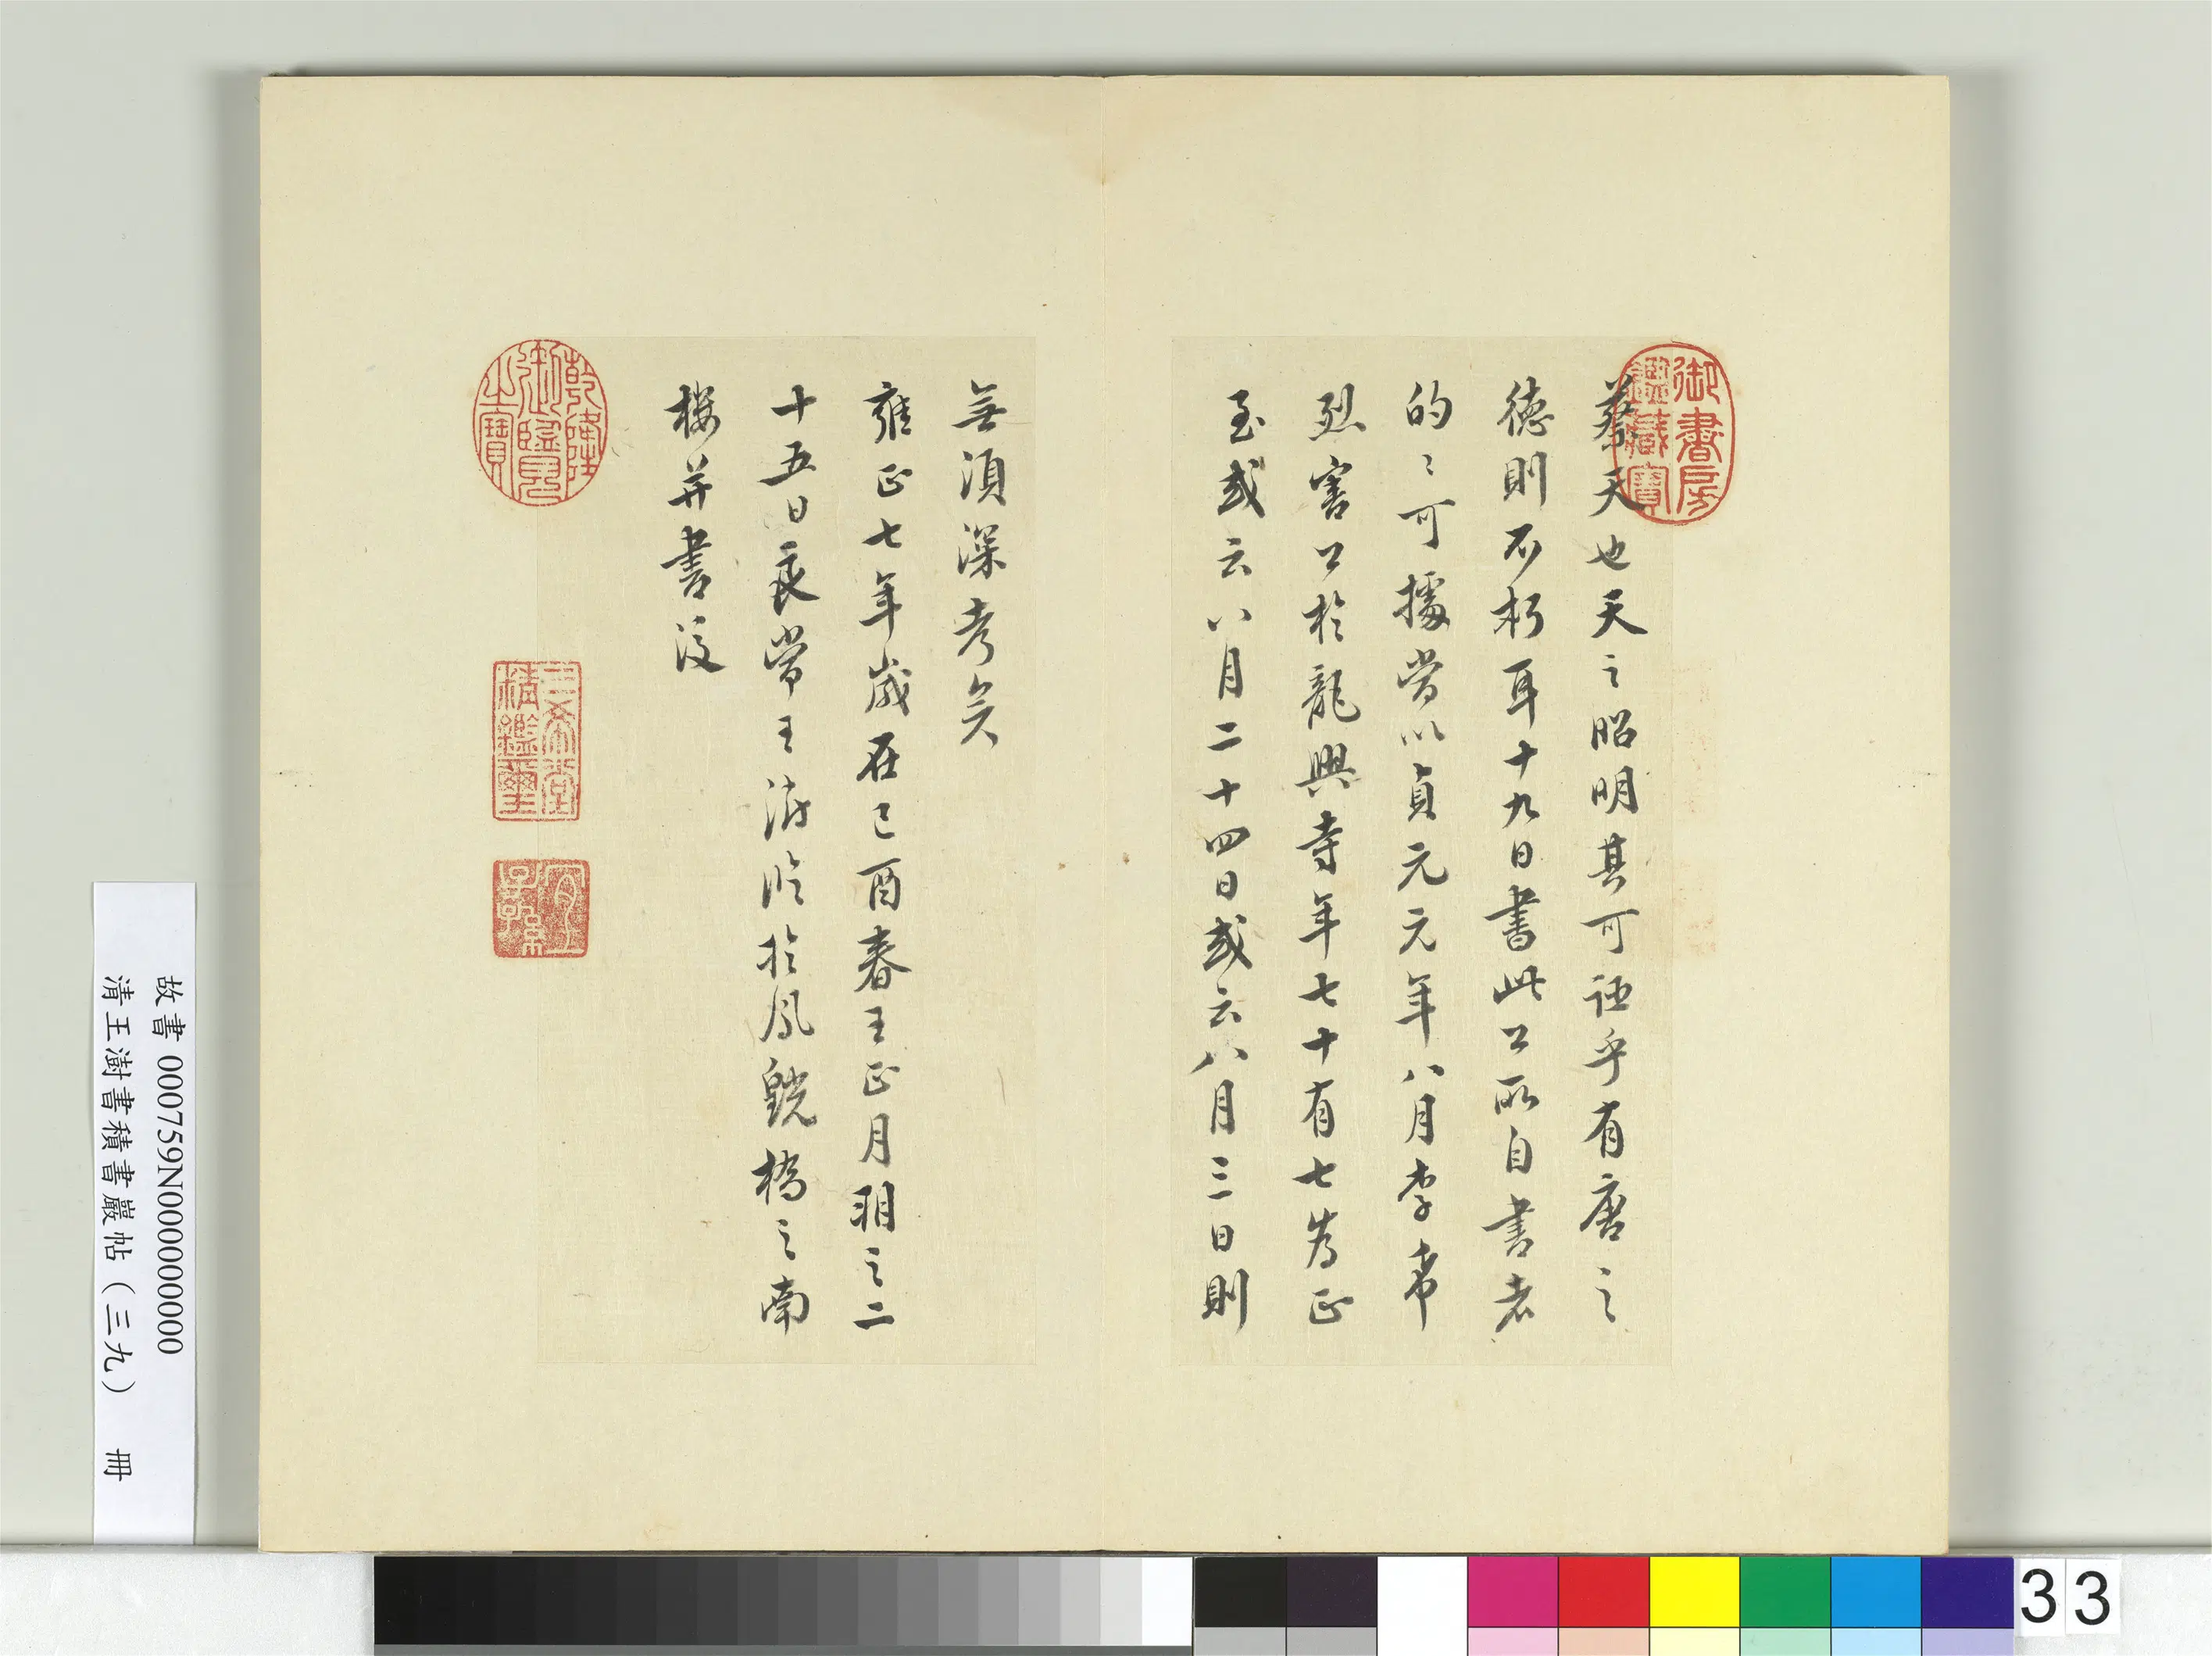 御書房鑑藏寶
蔡天也天之昭明其可誣乎有唐之
德則不朽耳十九日書此公所自書者
的〻可據當以貞元元年八月李希
烈害公於龍興寺年七十有七為正
至或云八月二十四日或云八月三日則
無須深考矣
雍正七年歲在己酉春王正月之二
十五日良常王澍臨於鳳橋之南
樓并書後
乾隆御覽之寶
三希堂精鑑璽
宜子孫
故書 000759N000000000
清王澍書積書巖帖（三九） 冊
33